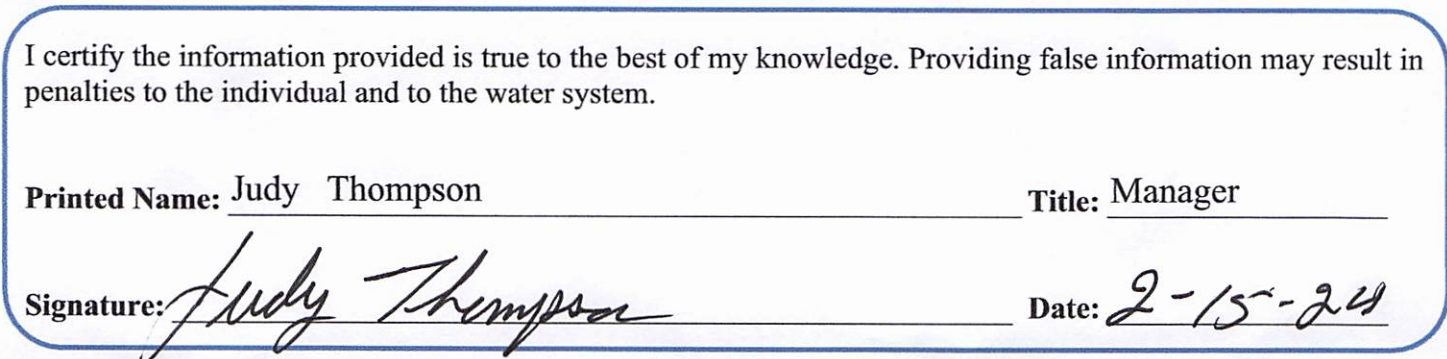 I certify the information provided is true to the best of my knowledge. Providing false information may result in
penalties to the individual and to the water system.
Printed Name: Judy Thompson Title: Manager
Signature: Judy Thompson Date: 2-15-24